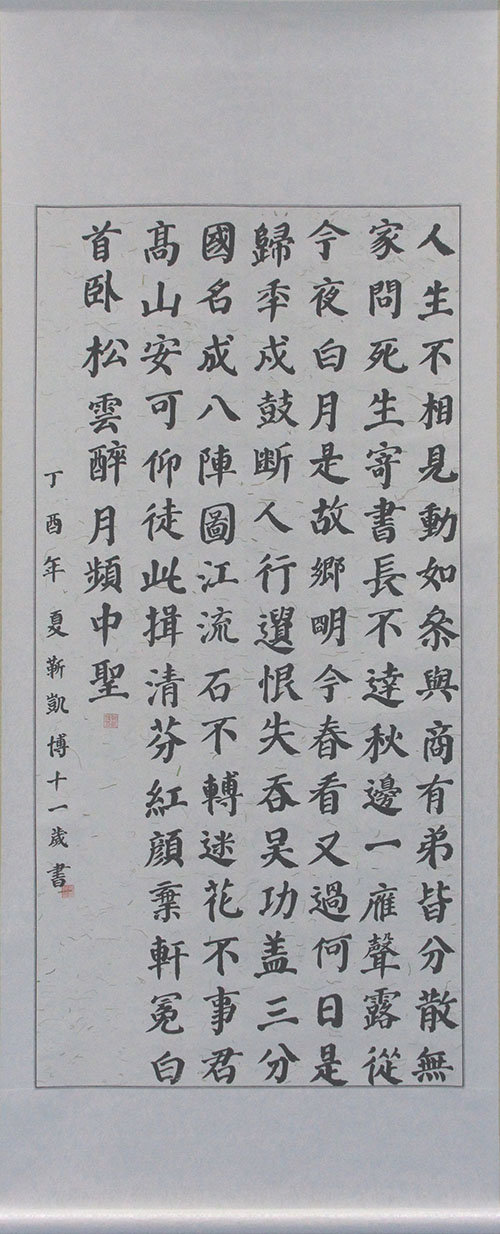 人生不相見動如叅與商有弟皆分散無
家問死生寄書長不達秋邊一雁聲露從
今夜白月是故鄉明今春看又過何日是
歸年戍鼓斷人行遺恨失吞吴功盖三分
國名成八陣圖江流石不轉迷花不事君
髙山安可仰徒此揖清芬紅顔棄軒冕白
首卧松雲醉月頻中聖
丁酉年夏靳凱博十一歲書